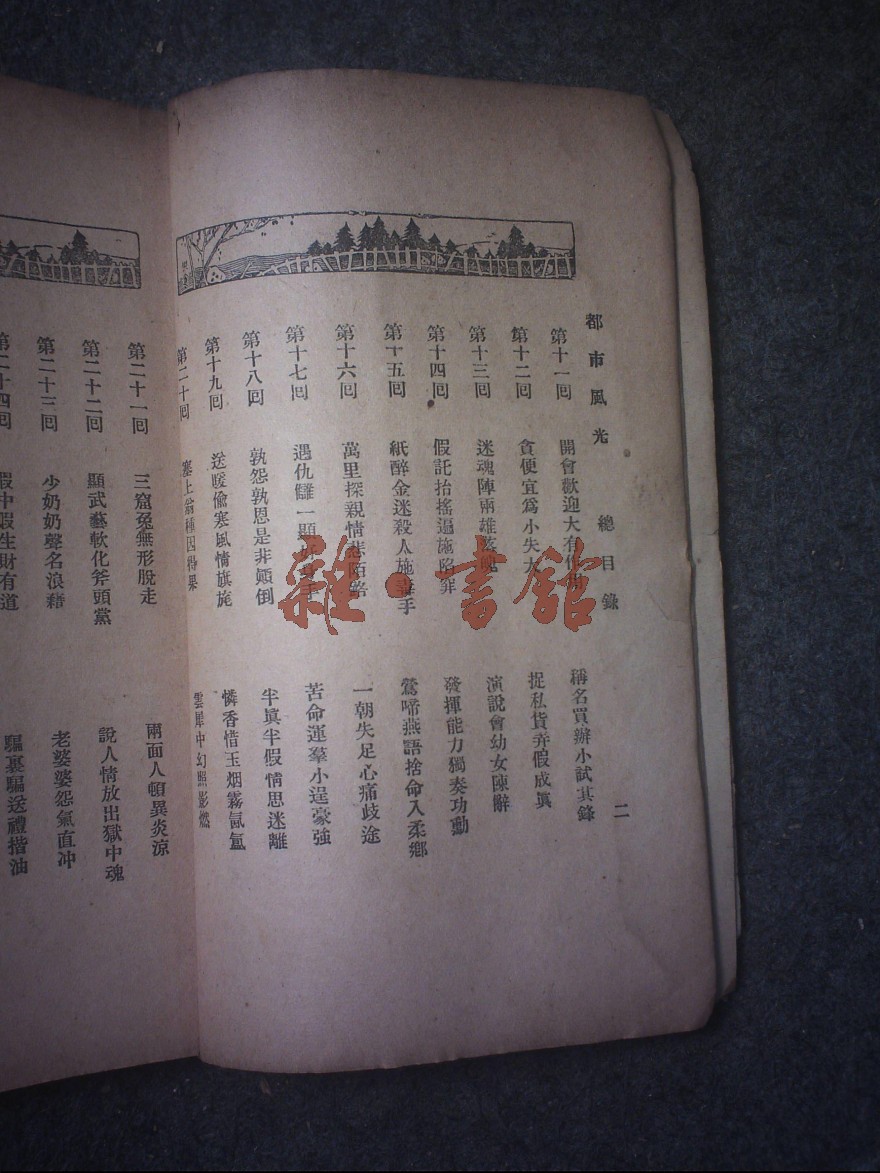 都市風光 總目錄 二
第十一回 開會歡迎大有作用 稱名買辦小試其鋒
第十二回 貪便宜爲小失大 捉私貨弄假成眞
第十三回 迷魂陣兩雄落魄 演說會幼女陳辭
第十四回 假託招搖逼施陷穽 發揮能力獨奏功勳
第十五回 紙醉金迷殺人施毒手 鶯啼燕語捨命入柔鄉
第十六回 萬里探親情悲陌路 一朝失足心痛歧途
第十七回 遇仇讎一顯好身手 苦命運羣小逞豪強
第十八回 孰怨孰恩是非顚倒 半眞半假情思迷離
第十九回 送暖偷寒風情旖旎 憐香惜玉烟霧氤氳
第二十回 塞上翁種因得果 雲犀中幻照影燃
第二十一回 三窟兔無形脫走 兩面人頓異炎涼
第二十二回 顯武藝軟化斧頭黨 說人情放出獄中魂
第二十三回 少奶奶聲名浪藉 老婆婆怨氣直冲
第二十四回 假中假生財有道 騙裏騙送禮揩油
雜·書館